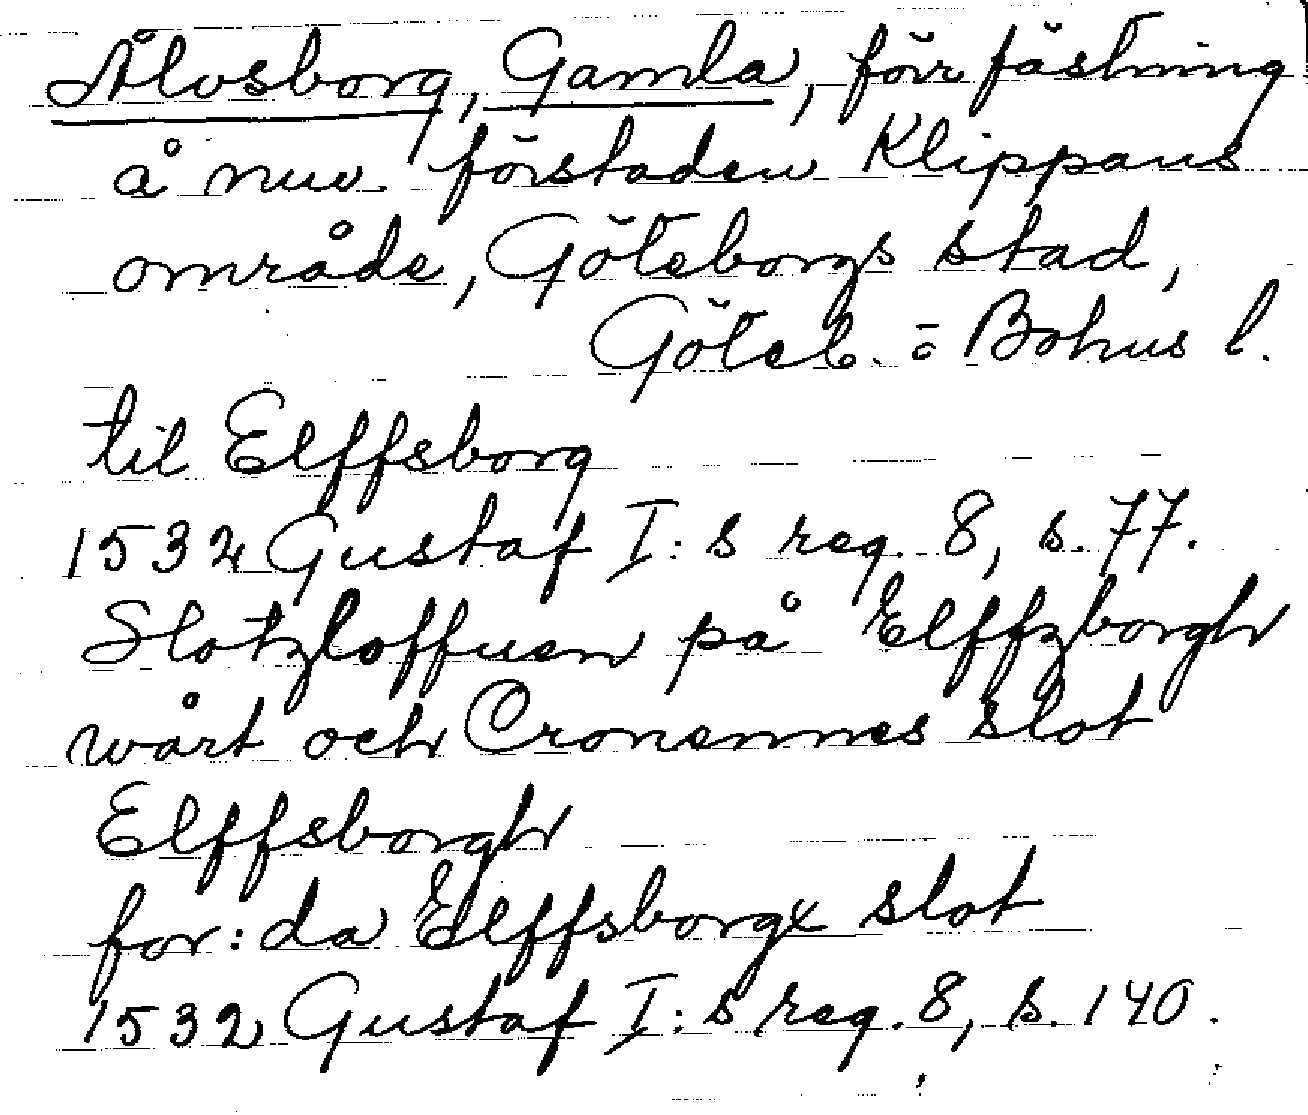 Älvsborg, Gamla, förr fästning
å nuv. förstaden Klippans
område, Göteborgs stad,
Göteb. o. Bohus l.
til Elffsborg
1532 Gustaf I:s reg. 8, s. 77.
Slotzloffuen på Elffzborgh
wårt och Cronennes slot
Elffsborgh
for:da Elffsborgx slot
1532 Gustaf I:s reg. 8, s. 140.